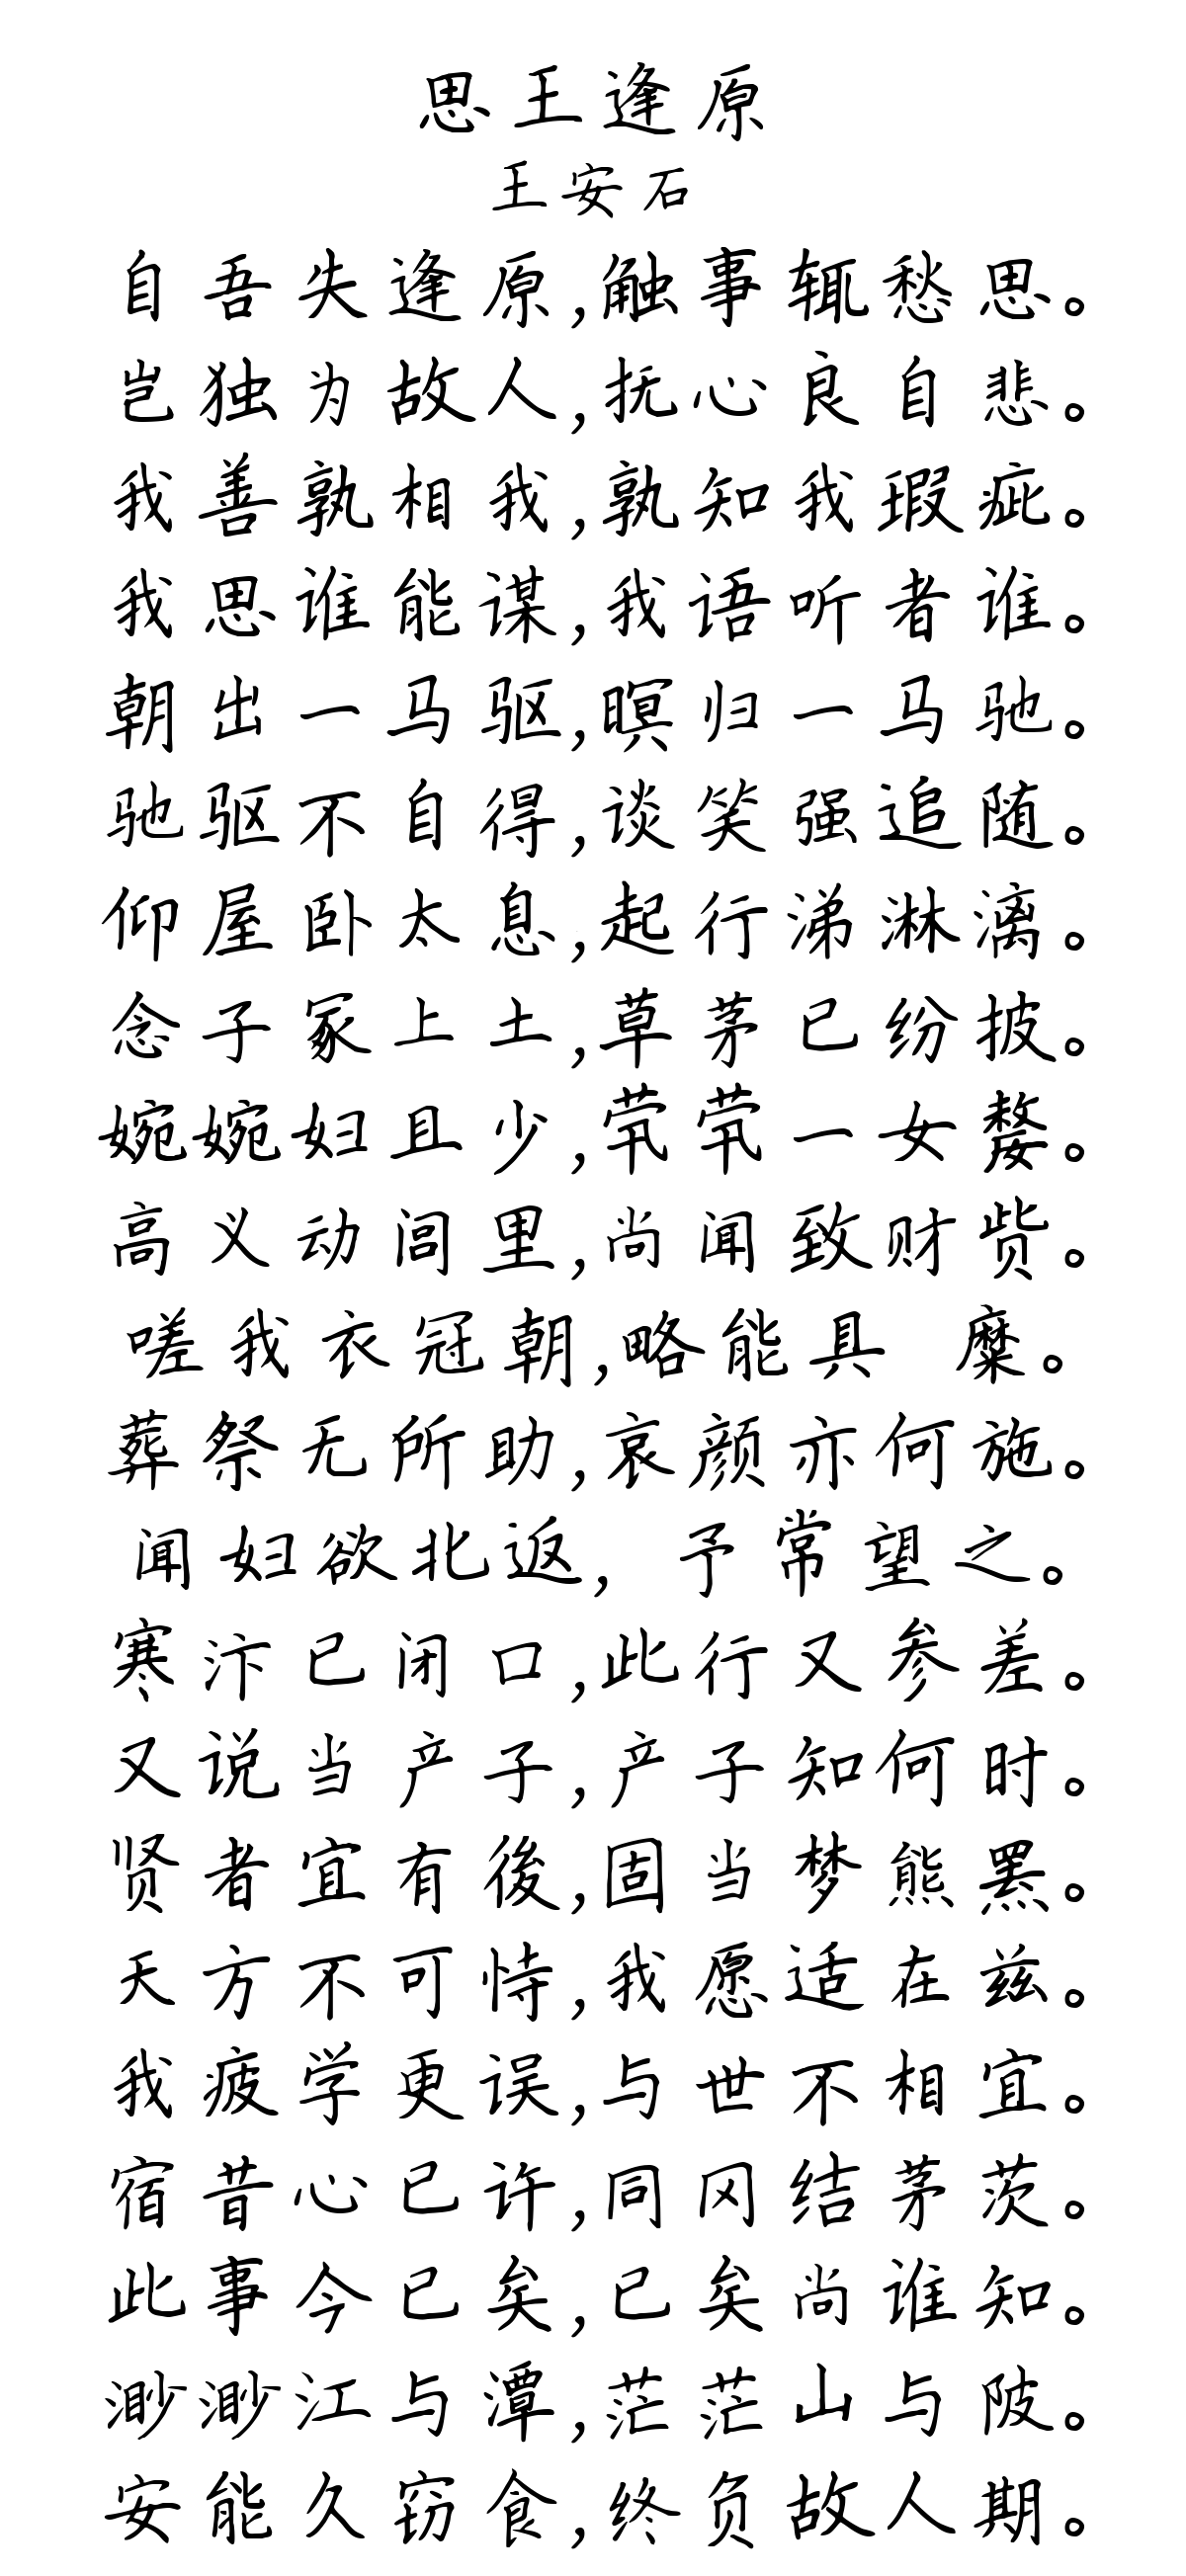 思王逢原
王安石
自吾失逢原,触事辄愁思。
岂独为故人,抚心良自悲。
我善孰相我,孰知我瑕疵。
我思谁能谋,我语听者谁。
朝出一马驱,暝归一马驰。
驰驱不自得,谈笑强追随。
仰屋卧太息,起行涕淋漓。
念子冢上土,草茅已纷披。
婉婉妇且少,茕茕一女嫠。
高义动闾里,尚闻致财赀。
嗟我衣冠朝,略能具 糜。
葬祭无所助,哀颜亦何施。
闻妇欲北返, 予常望之。
寒汴已闭口,此行又参差。
又说当产子,产子知何时。
贤者宜有後,固当梦熊罴。
天方不可恃,我愿适在兹。
我疲学更误,与世不相宜。
宿昔心已许,同冈结茅茨。
此事今已矣,已矣尚谁知。
渺渺江与潭,茫茫山与陂。
安能久窃食,终负故人期。